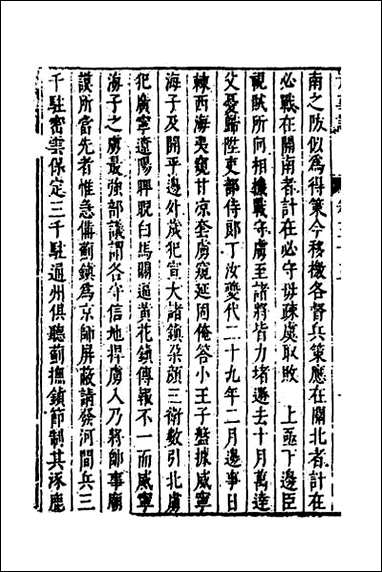 南之阪似爲得策今移檄各督兵策應在關北者計在
必戰在關南者計在必守毋疎虞取敗　上亟下邊臣
視賊所向相機戰守虜至諸將皆力堵遏去十月萬達
父憂歸陞吏部侍郎丁汝夔代二十九年二月邊事日
棘西海夷窺甘凉套虜窺延周俺答小王子盤據威寧
海子及開平邊外歲犯宣大諸鎮朶顏三衛數引北虜
犯廣寧遼陽睥睨白馬關逼黃花鎮傳報不一而威寧
海子之虜最強部議謂各守信地捍虜人乃將帥事廟
謨所當先者惟急備薊鎮爲京師屏蔽請發河間兵三
千駐密雲保定三千駐通州俱聽薊撫鎮節制其涿鹿